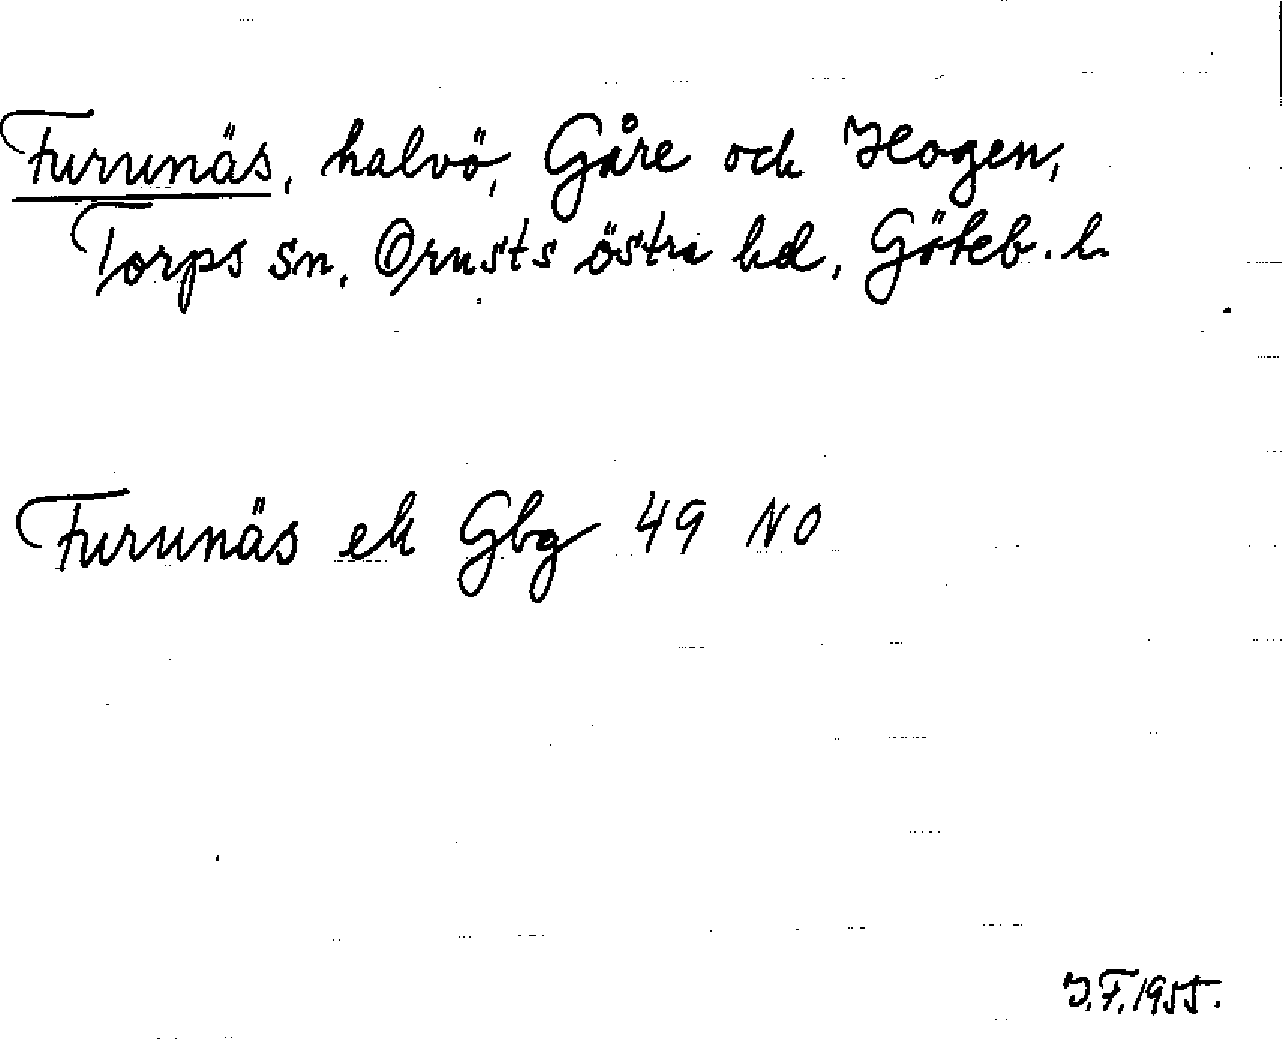 Furunäs, halvö, Gåre och Hogen,
Torps sn, Orusts östra hd, Göteb. l.
Furunäs ek Gbg 49 NO
J.F. 1955.